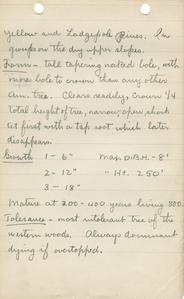 Yellow and Lodgepole Pines. In
groups on the dry upper slopes.
Form - tall tapering naked bole, with
more bole to crown than any other
Am. tree. Clears readily, Crown 1/4
total height of tree, narrow, open, short
At first with a tap root which later
disappears.
Growth 1 - 6" Max. D.B.H. - 8'
2 - 12" " Ht. 250'
3 - 18"
Mature at 300-400 years living 500.
Tolerance - most intolerant tree of the
western woods. Always dominant
dying if overtopped.